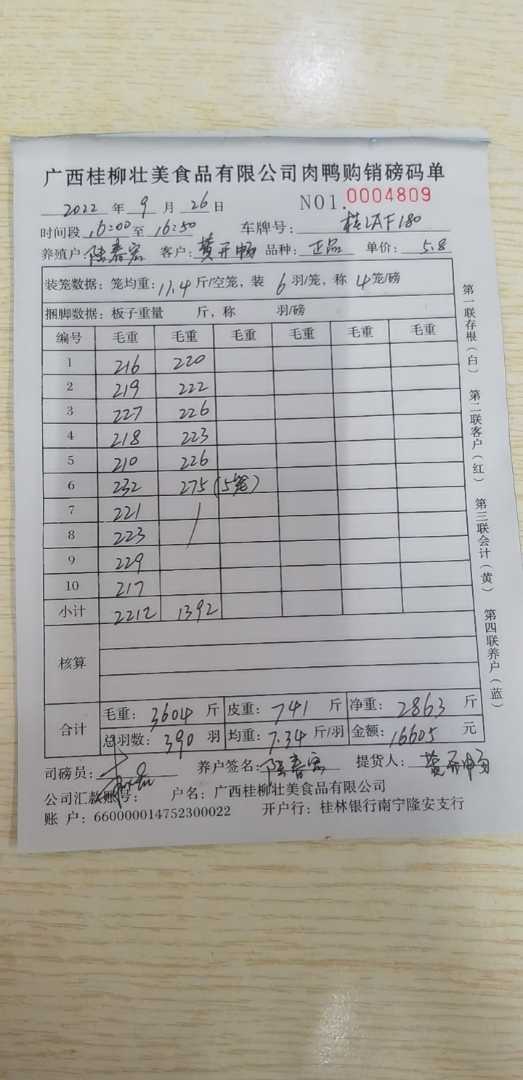 广西桂柳壮美食品有限公司肉鸭购销磅码单
2022 年 9 月 26 日 NO1. 0004809
时间段 16:00 至 16:50 车牌号: 桂LAF180
养殖户: 陆春宏 客户: 黄开畅 品种: 正品 单价: 5.8
装笼数据: 笼均重: 11.4 斤/空笼, 装 6 羽/笼, 称 4 笼/磅
捆脚数据: 板子重量 斤, 称 羽/磅
编号 毛重 毛重 毛重 毛重 毛重 毛重
1 216 220
2 219 222
3 227 226
4 218 223
5 210 226
6 232 275 (5笼)
7 221 /
8 223
9 229
10 217
小计 2212 1392
核算
合计 毛重: 3604 斤 皮重: 741 斤 净重: 2863 斤
总羽数: 390 羽 均重: 7.34 斤/羽 金额: 16605 元
司磅员: 养户签名: 陆春宏 提货人: 黄开畅
公司汇款账号: 户名: 广西桂柳壮美食品有限公司
账 户: 660000014752300022 开户行: 桂林银行南宁隆安支行
第一联存根(白) 第二联客户(红) 第三联会计(黄) 第四联养户(蓝)